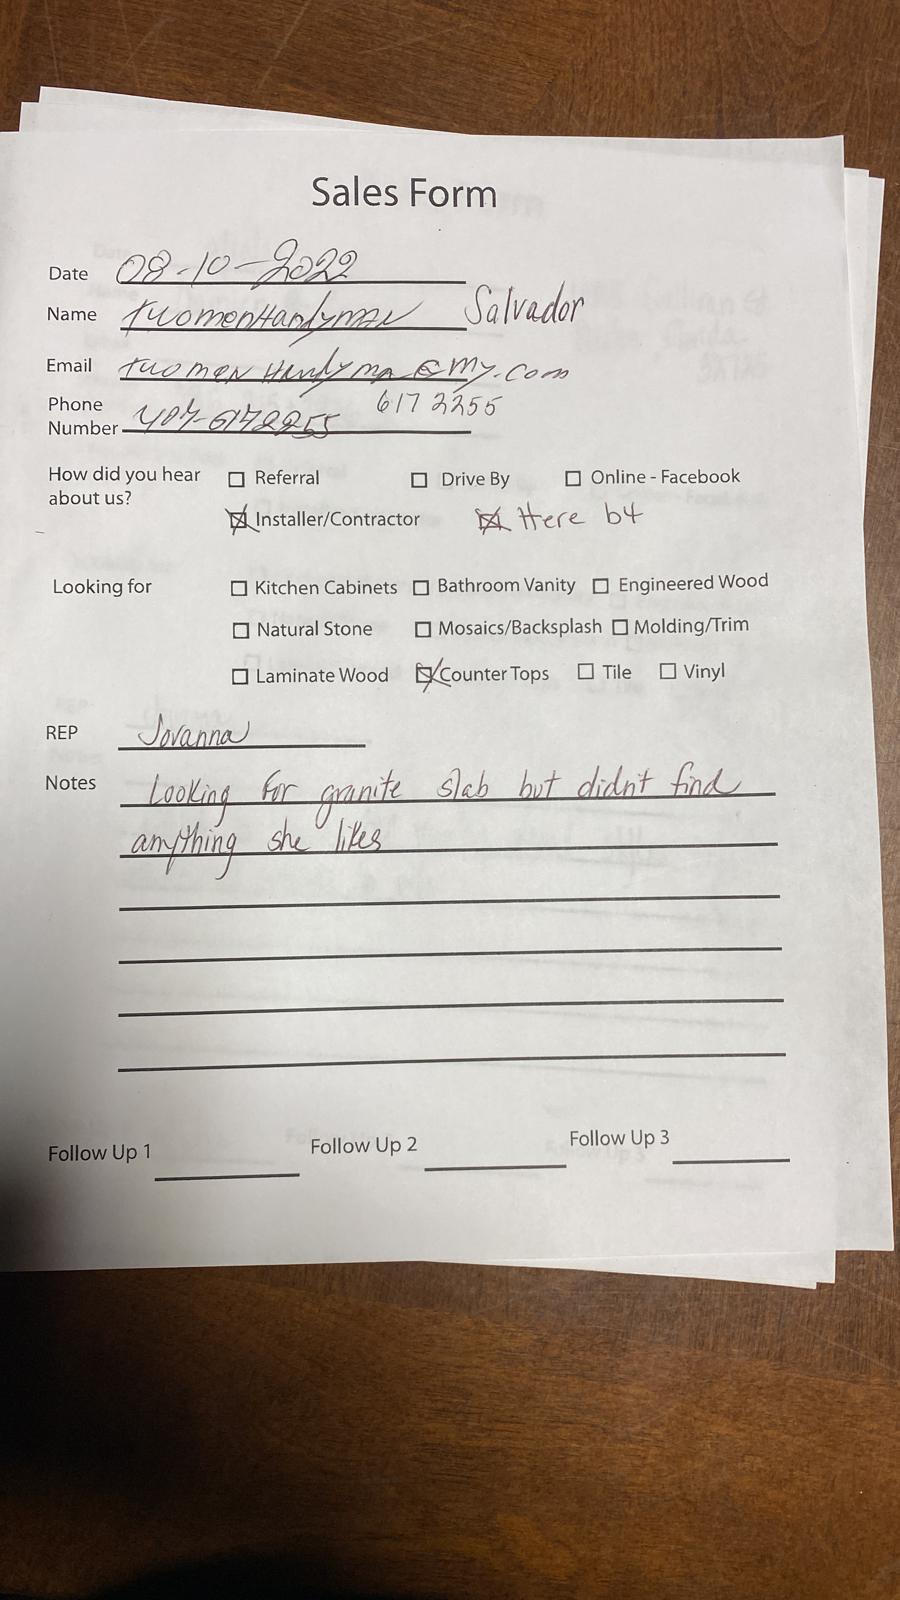 Sales Form
Date 08-10-2022
Name twomenHandyman Salvador
Email twomen Handyma@my.com
Phone
Number 407-6172255 617 2255
How did you hear about us? ☐ Referral ☐ Drive By ☐ Online - Facebook
☒ Installer/Contractor ☒ Here b4
Looking for ☐ Kitchen Cabinets ☐ Bathroom Vanity ☐ Engineered Wood
☐ Natural Stone ☐ Mosaics/Backsplash ☐ Molding/Trim
☐ Laminate Wood ☒ Counter Tops ☐ Tile ☐ Vinyl
REP Jovanna
Notes Looking for granite slab but didn't find
anything she likes
Follow Up 1 Follow Up 2 Follow Up 3